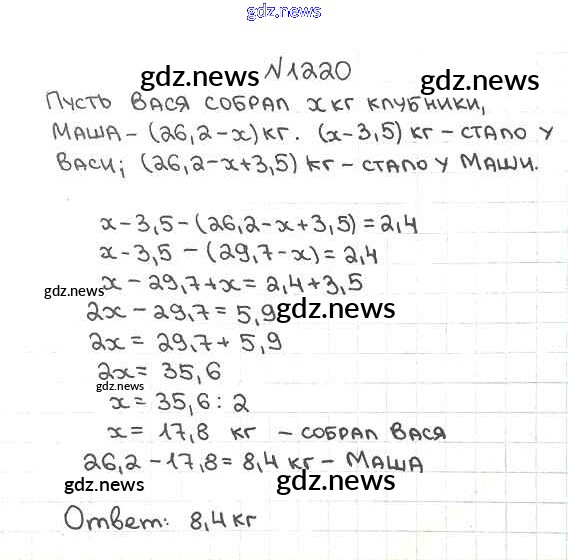 gdz.news
№1220
gdz.news gdz.news
Пусть Вася собрал x кг клубники,
Маша – (26,2 – x) кг. (x – 3,5) кг – стало у
Васи; (26,2 – x + 3,5) кг – стало у Маши.
x – 3,5 – (26,2 – x + 3,5) = 2,4
x – 3,5 – (29,7 – x) = 2,4
x – 29,7 + x = 2,4 + 3,5
gdz.news
2x – 29,7 = 5,9
gdz.news
2x = 29,7 + 5,9
2x = 35,6
gdz.news
x = 35,6 : 2
x = 17,8 кг – собрал Вася
26,2 – 17,8 = 8,4 кг – Маша
gdz.news gdz.news
Ответ: 8,4 кг